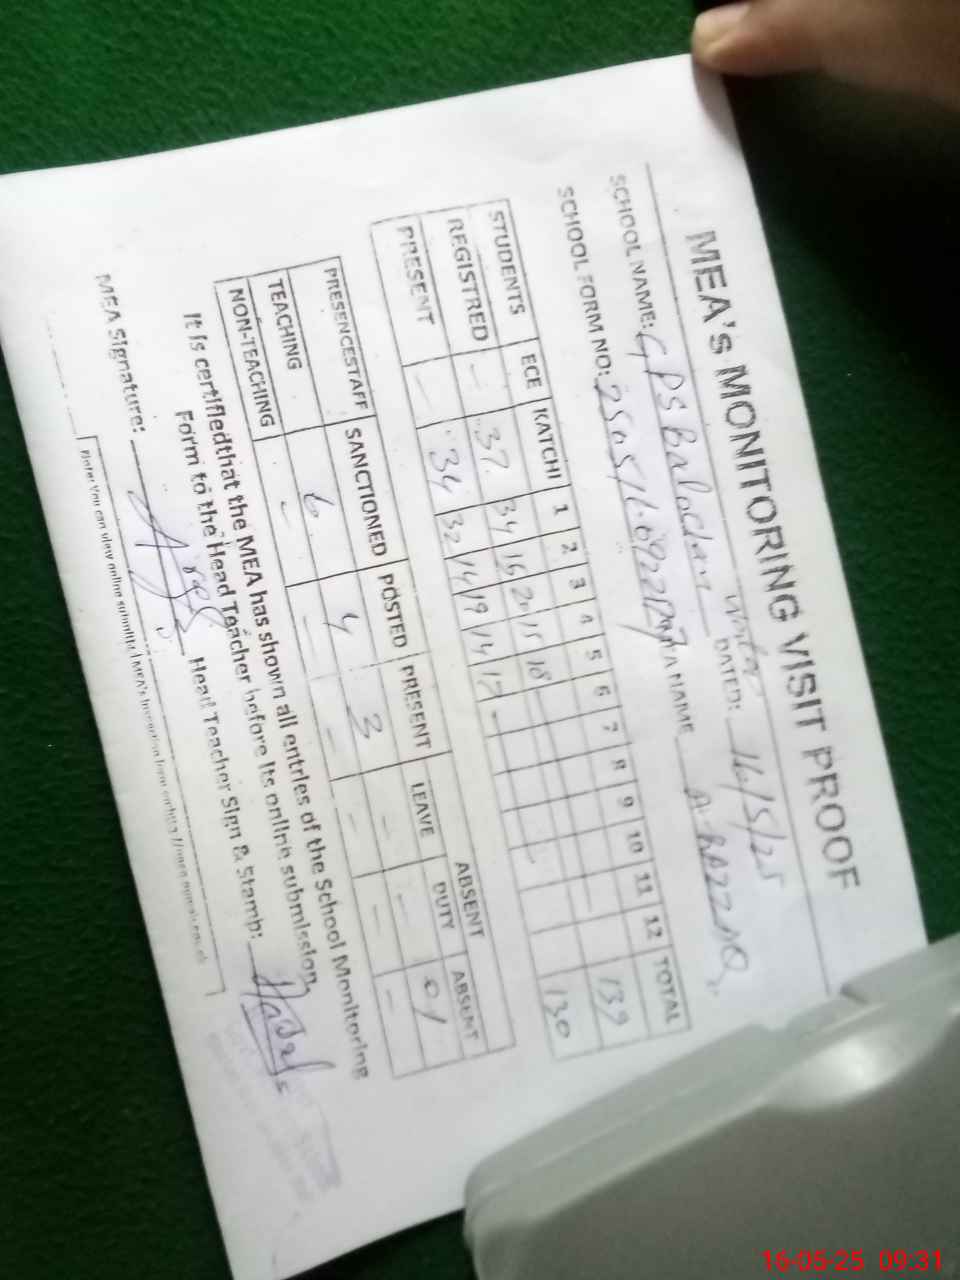 MEA's MONITORING VISIT PROOF
DATED: 16/5/25
SCHOOL NAME: GPS
SCHOOL FORM NO: NAME A. RAZZAQ
STUDENTS ECE KATCHI 1 2 3 4 5 6 7 8 9 10 11 12 TOTAL
REGISTRED - 37 34 16 20 15 18 139
PRESENT - 34 32 14 19 14 17 - 130
PRESENCESTAFF SANCTIONED POSTED PRESENT LEAVE ABSENT DUTY ABSENT
TEACHING 6 4 3 - - 01
NON-TEACHING - - - - - -
It is certifiedthat the MEA has shown all entries of the School Monitoring
Form to the Head Teacher before its online submission.
MEA Signature: Head Teacher Sign & Stamp:
Note: You can view online submitted MEA's
16-05-25 09:31